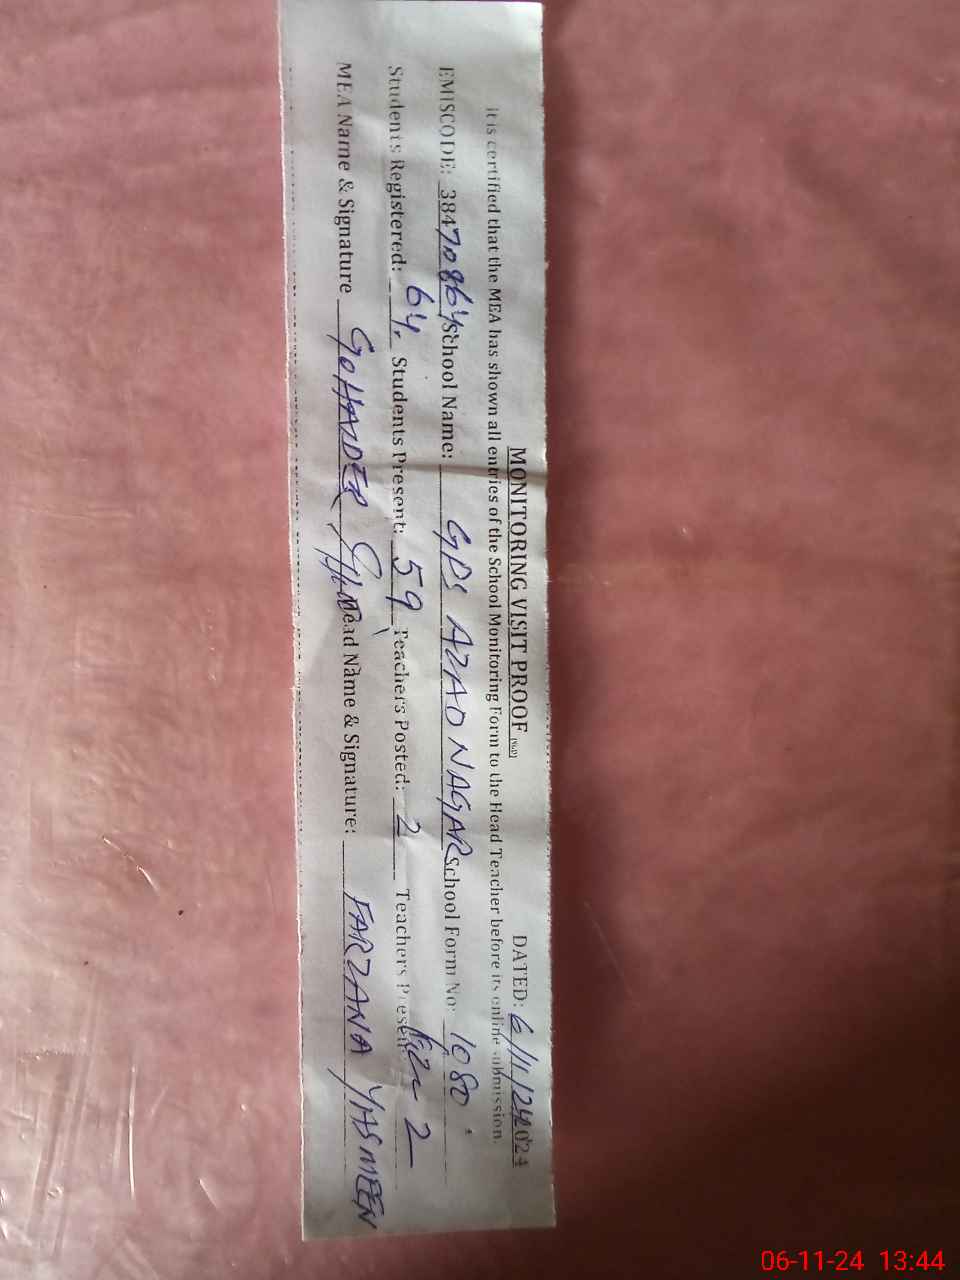 MONITORING VISIT PROOF DATED: 6/11/2024
it is certified that the MEA has shown all entries of the School Monitoring Form to the Head Teacher before its online submission.
EMISCODE: 38470864 School Name: GPS AZAD NAGAR School Form No: 1080
Students Registered: 64. Students Present: 59 Teachers Posted: 2 Teachers Present: 2
MEA Name & Signature HAIDER Head Name & Signature: FARZANA YASMEEN
06-11-24 13:44